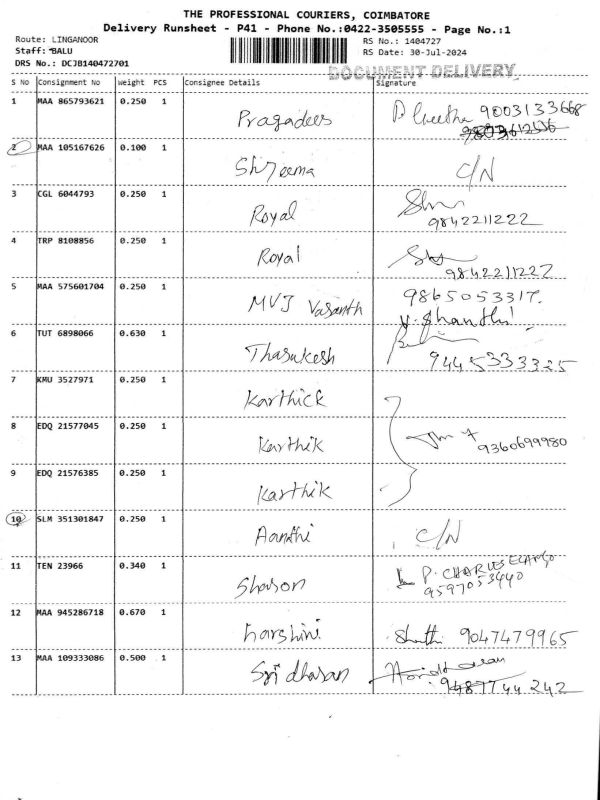 THE PROFESSIONAL COURIERS, COIMBATORE
Delivery Runsheet - P41 - Phone No.:0422-3505555 - Page No.:1
Route: LINGANOOR
Staff: *BALU
DRS No.: DCJB140472701
RS No.: 1404727
RS Date: 30-Jul-2024
DOCUMENT DELIVERY
S No Consignment No Weight PCS Consignee Details Signature
1 MAA 865793621 0.250 1 Pragadees P. Geetha 9003133668
2 MAA 105167626 0.100 1 Shreema C/N
3 CGL 6044793 0.250 1 Royal 9842211222
4 TRP 8108856 0.250 1 Royal 9842211222
5 MAA 575601704 0.250 1 MVJ Vasanth 9865053317.
V. Shanthi
6 TUT 6898066 0.630 1 Tharukesh 9445333325
7 KMU 3527971 0.250 1 Karthick
8 EDQ 21577045 0.250 1 Karthik 9360699980
9 EDQ 21576385 0.250 1 Karthik
10 SLM 351301847 0.250 1 Aandhi C/N
11 TEN 23966 0.340 1 Sharon P. CHARLES
9597053440
12 MAA 945286718 0.670 1 harshini Shanthi 9047479965
13 MAA 109333086 0.500 1 Sri dharan
9487744242